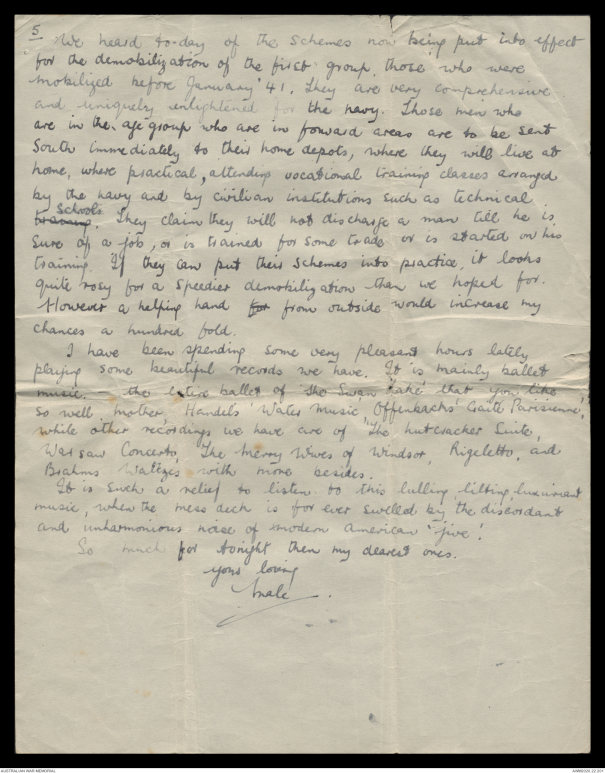 5
We heard to-day of the schemes now being put into effect
for the demobilization of the first group, those who were
mobilized before January '41. They are very comprehensive
and uniquely enlightened for the navy. Those men who
are in the age group who are in forward areas are to be sent
South immediately to their home depots, where they will live at
home, where practical, attending vocational training classes arranged
by the navy and by civilian institutions such as technical
training Schools. They claim they will not discharge a man till he is
sure of a job, or is trained for some trade or is started on his
training. If they can put their schemes into practice, it looks
quite rosy for a speedier demobilization than we hoped for.
However a helping hand for from outside would increase my
chances a hundred fold.
I have been spending some very pleasant hours lately
playing some beautiful records we have. It is mainly ballet
music. the entire ballet of 'the Swan Lake' that you like
so well mother, Handels 'Water Music, Offenbachs 'Gaite Parisienne',
while other recordings we have are of 'The nutcracker Suite,
Warsaw Concerto, The Merry Wives of Windsor, Rigeletto, and
Brahms Waltzes with more besides.
It is such a relief to listen to this lulling lilting luxuriant
music, when the mess deck is for ever swelled by the discordant
and unharmonious noise of modern American 'jive'.
So much for tonight then my dearest ones.
yours loving
AUSTRALIAN WAR MEMORIAL